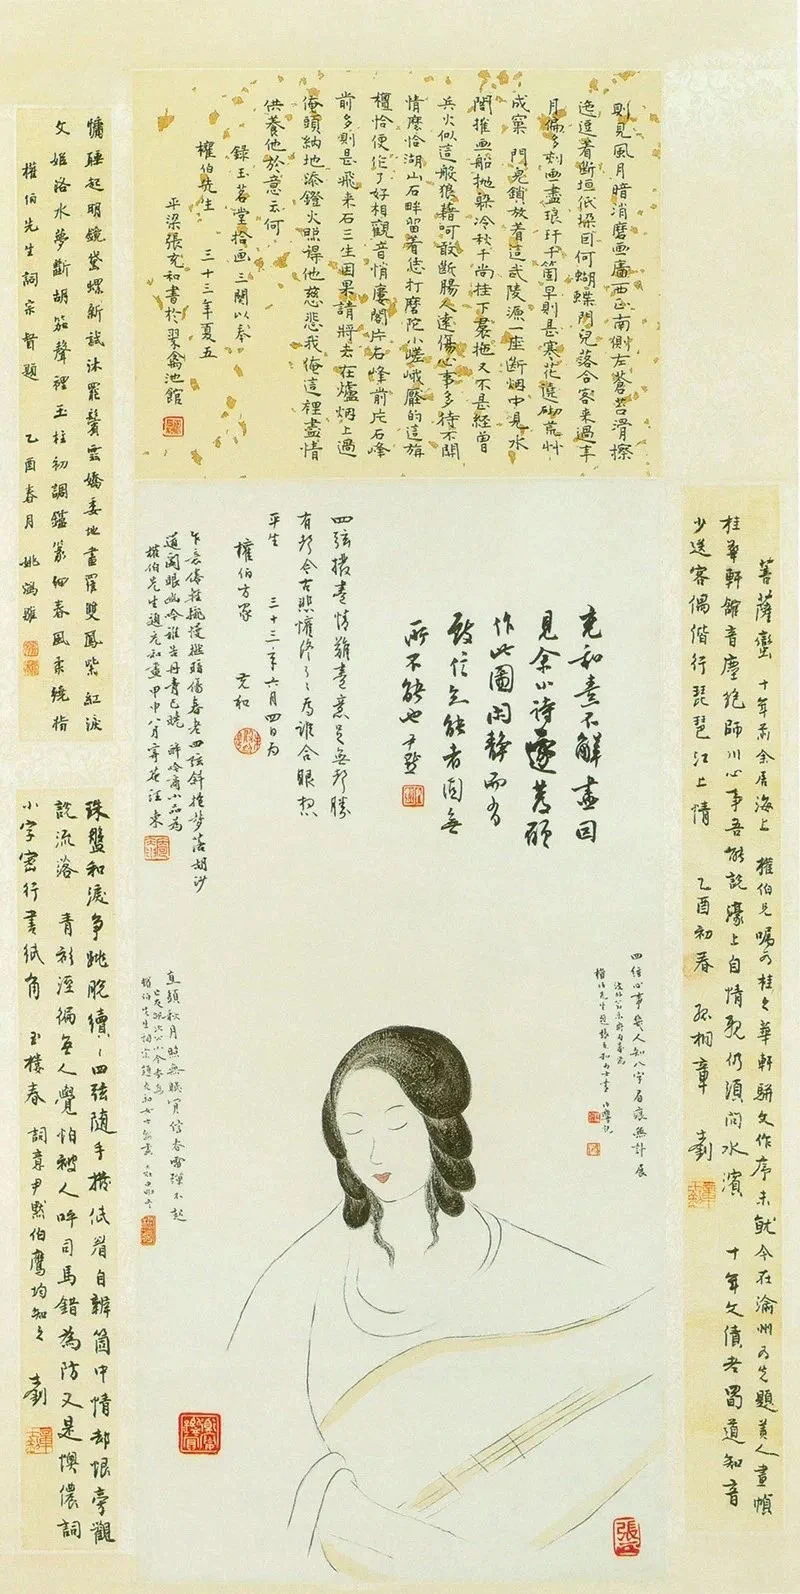 則見風月暗消磨畫牆西正南側左蒼苔滑擦
逶逗着斷垣低垜因何蝴蝶門兒落合客來過年
月偏多刻画盡琅玕千箇早則是寒花遶砌荒艸
成窠 門兒鎖放着這武陵源一座斷烟中見水
閣摧画船拋躲冷秋千尚挂下裙拖又不是經曾
兵火似這般狼藉呵敢斷腸人遠傷心事多待不關
情麼恰湖山石畔留着你打磨陀小嵯峨壓的這旃
檀恰便作了好相觀音悄廔閣片石峰前片石峰
前多則是飛來石三生因果請將去在爐烟上過
俺頭納地添鐙火照得他慈悲我俺這裡盡情
供養他於意云何
錄玉茗堂拾画三闋以奉
權伯先生 三十三年夏五
平梁張充和書於翠禽池館
慵睡起明鏡黛螺新試沐罷鬢雲嬌委地畫羅雙鳳紫 紅淚
文姬洛水夢斷胡笳聲裡玉柱初調鑪篆細春風柔繞指
權伯先生詞宗督題 乙酉春月 姚鵷雛
充和素不解畫因
見余小詩遂發願
作此圖閑靜而有
致信知能者固無
所不能也 尹默
四弦撥盡情難盡意足無聲勝
有聲今古悲懽終了了為誰合眼想
平生 三十三年六月四日為
權伯方家 充和
乍裹倦挂撥慢撚暗傷春老四弦斜抱夢落胡沙
道關眼幽冷誰省丹青已曉 醉吟商小品為
權伯先生題充和畫甲申八月寄菴汪東
四弦心事幾人知八字眉痕無計展
權伯先生題張充和女士畫
直頭秋月照無眠
菩薩蠻 十年前余居海上 權伯兄囑為桂之華軒駢文作序未就今在渝州為先題美人畫幀
桂華軒館音塵絕師川心事吾能說濠上自情親仍須問水濱 十年文債老蜀道知音
少送客偶偕行琵琶江上情 乙酉初春 孤桐章 士釗
珠盤和淚爭跳脫續續四弦隨手撥低眉自辦箇中情却恨旁觀
說流落 青衫溼徧無人覺怕被人呼司馬錯為防又是懊儂詞
小字密行書紙角 玉樓春 詞意尹默伯鷹均知之 士釗